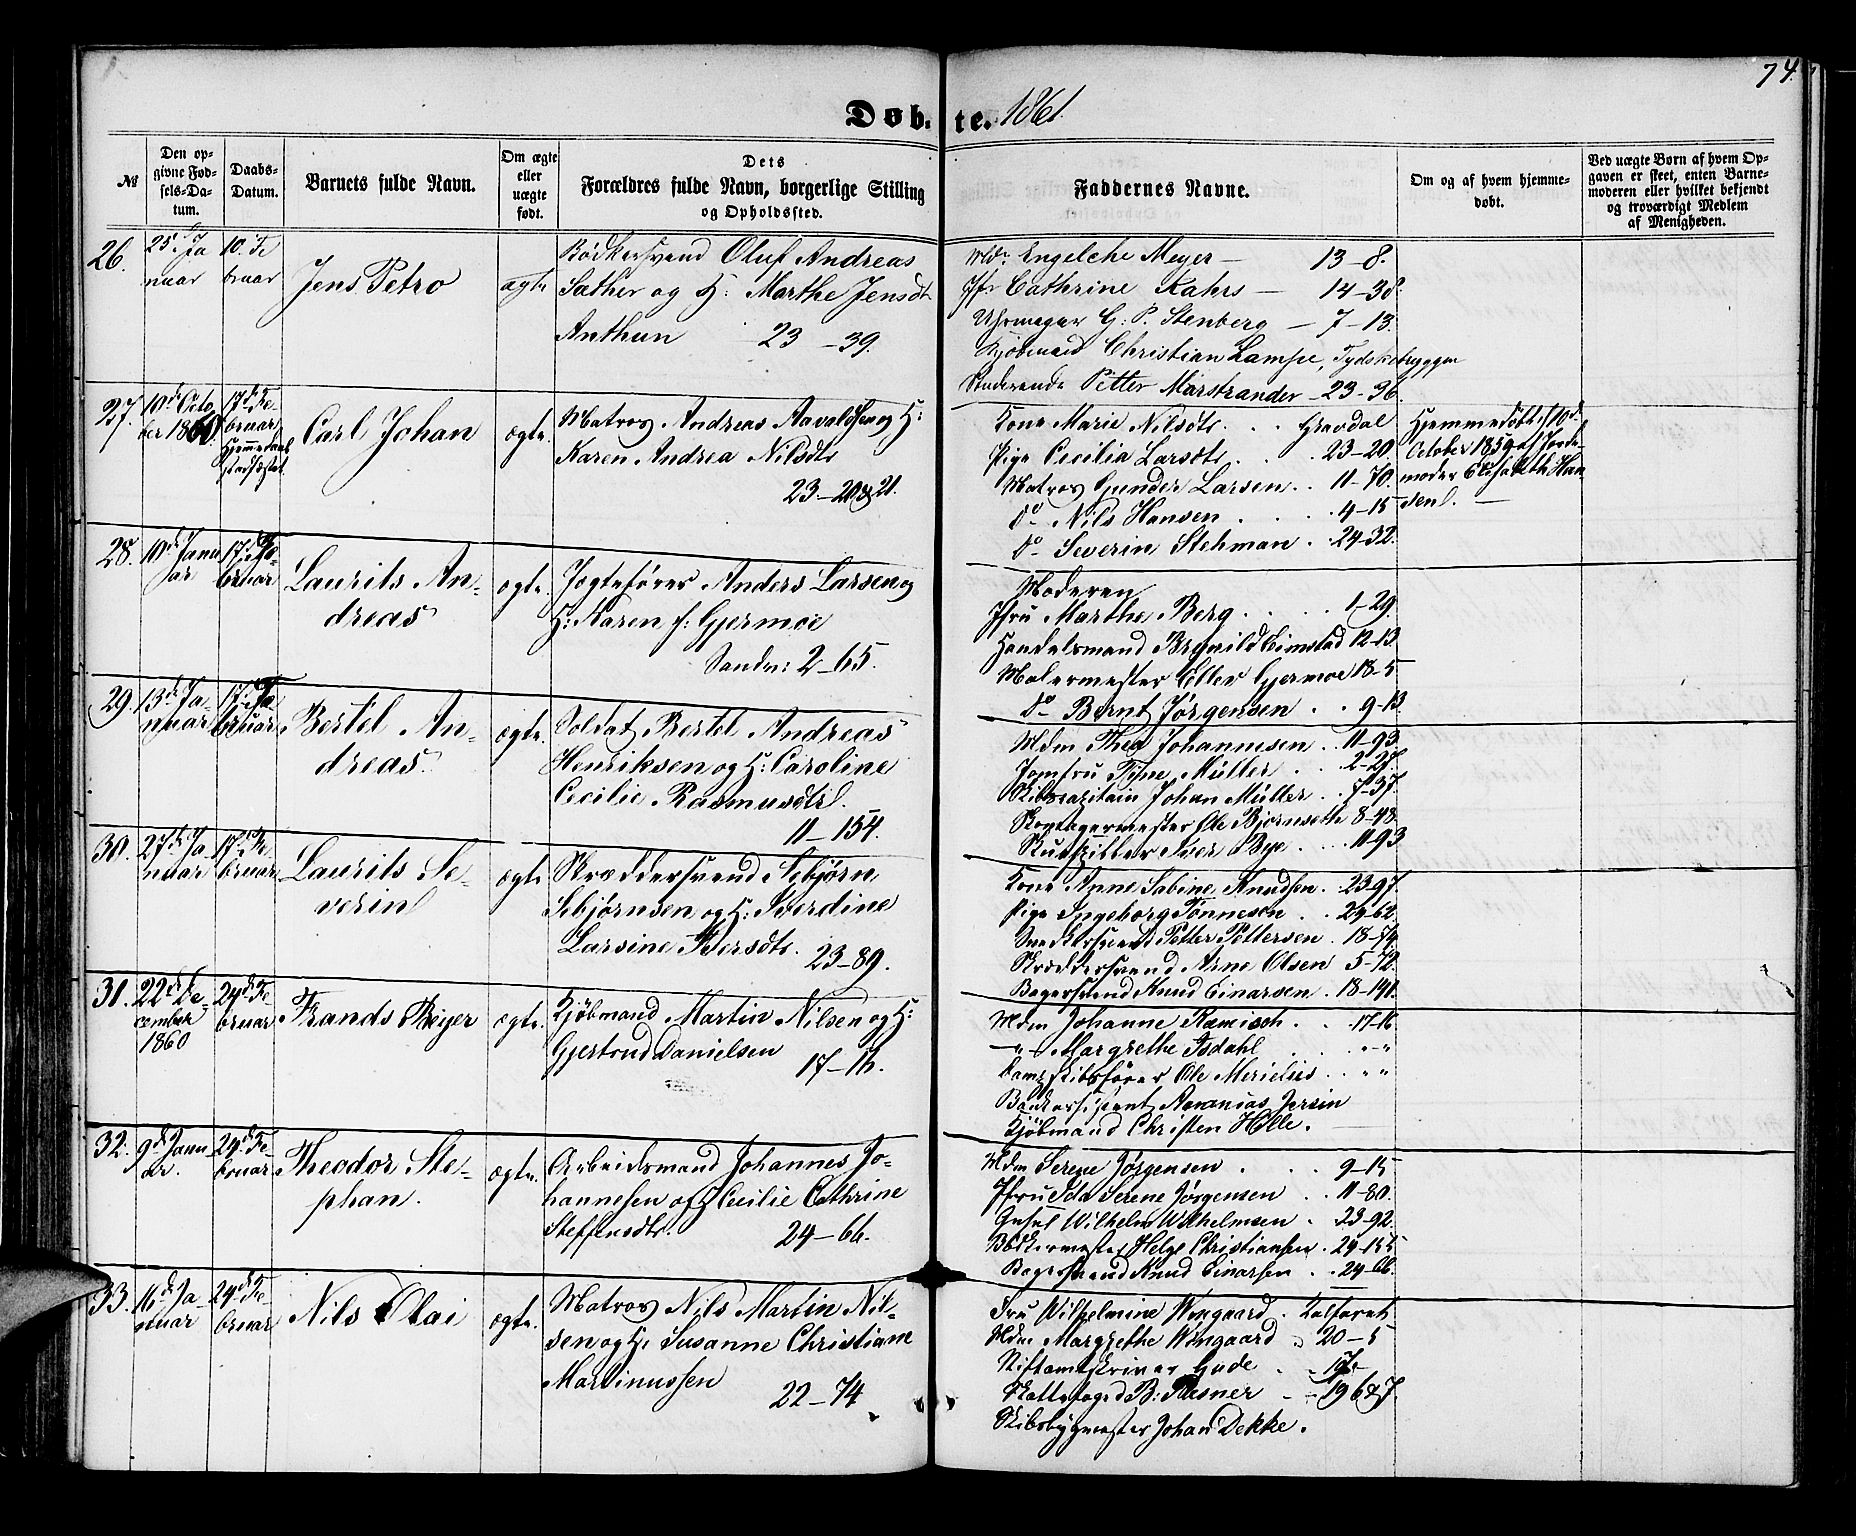 74.
Døbte. 1861.
№
Den opgivne Fødsels-Datum.
Daabs-Datum.
Barnets fulde Navn.
Om ægte eller uægte født.
Dets Forældres fulde Navn, borgerlige Stilling og Opholdssted.
Faddernes Navne.
Om og af hvem hjemmedøbt.
Ved uægte Børn af hvem Opgaven er skeet, enten Barnemoderen eller hvilket bekjendt og troværdigt Medlem af Menigheden.
26.
25. Ja
nuar
10. Fe
bruar
Jens Petro
ægte
Bødkersvend Oluf Andreas
Sæther og H: Marthe Jensdt
Anthun 23 - 39.
Engelche Meyer - 13-8.
Jfr Cathrine Kahrs - 14-38.
Uhrmager G: P. Stenberg - 7-13.
Kjøbmand Christian Lampe, Tydskebryggen
Studerende Petter Marstrander - 23-96.
27.
10de Octo
ber 1860
17de Fe-
bruar
Hjemmedaab
stadfæstet
Carl Johan
ægte.
Matros Andreas Aavaldsen og H:
Karen Andrea Nilsdtr
23-20 & 21.
Kone Marie Nilsdtr. . . Gravdal
Pige Cecilia Larsdtr. . . 23-20.
Matros Gunder Larsen. . 11-70.
do Nils Hansen . . . 4-15
do Severin Stehman . 24-32.
Hjemmedøbt 10d.
October 1859 af Jorde-
moder Elisabeth Han
sen. -
28.
10de Janu
ar
17de Fe-
bruar
Laurits An-
dreas
ægte.
Jagtefører Anders Larsen og
H: Karen f: Gjermoe
Sandv: 2-65.
Moderen
Jfru Marthe Berg . . . . 1-29.
Handelsmand Eimstad 12-13.
Malermester Eller Gjermoe 18-5
do Bernt Jørgensen . . 9-13.
29.
13de Ja-
nuar
17de Fe
bruar
Bertel An-
dreas.
ægte.
Soldat Bertel Andreas
Henriksen og H: Caroline
Cecilie Rasmusdtr.
11-154.
Mdm Thea Johannesen . . 11-93.
Jomfru Tine Müller . . 2-27.
Skibscapitain Johan Müller . . 7-37.
Skomagermester Ole Bjørnseth 8-48.
Iver Bye . . . 11-93
30.
27de Ja-
nuar
17de Fe
bruar
Laurits Se-
verin
ægte
Skræddersvend Sebjørn
Sebjørnsen og H: Sverdine
Larsine Iversdtr. 23-89.
Kone Anne Sabine Knudsen . 23-97.
Pige Ingeborg Tønnesen . . 24-62.
Snedkersvend Petter Pettersen . 18-74.
Skræddersvend Arne Olsen 5-72.
Bagersvend Knud Einarsen . 18-141.
31.
22de De-
cember
1860
24de Fe
bruar
Frands Beyer
ægte.
Kjøbmand Martin Nilsen og H:
Gjertrud Danielsen
17-16.
Mdm Johanne Ramisch . . . 17-16
-"- Margrethe Isdahl . . . "-"
Dampskibsfører Ole Merielius . . " "
Aananias Jersin
Kjøbmand Christen Hille.
32.
9de Janu
ar.
24de Fe-
bruar
Theodor Ste-
phan.
ægte.
Arbeidsmand Johannes Jo-
hannesen og H: Cecilie Cathrine
Steffensdtr.
24-66.
Mdm Serene Jørgensen . . . 9-15
Jfru Ida Serene Jørgensen . . 11-80.
Wilhelm Wilhelmsen . 23-92.
Bødkermester Helge Christiansen . 24-155
Bagersvend Knud Einarsen . . 24-66.
33.
16de Ja-
nuar
24de Fe-
bruar
Nils Olai
ægte.
Matros Nils Martin Nil-
sen og H: Susanne Christiane
Martinussen
22-74
Fru Wilhelmine Wingaard . Kalfaret
Mdm Margrethe Wingaard " 20-5
Stiftamtskriver Gude . 17-
Skattefoged B: - 19 6&7.
Skibsbygmester Johan Dekke.